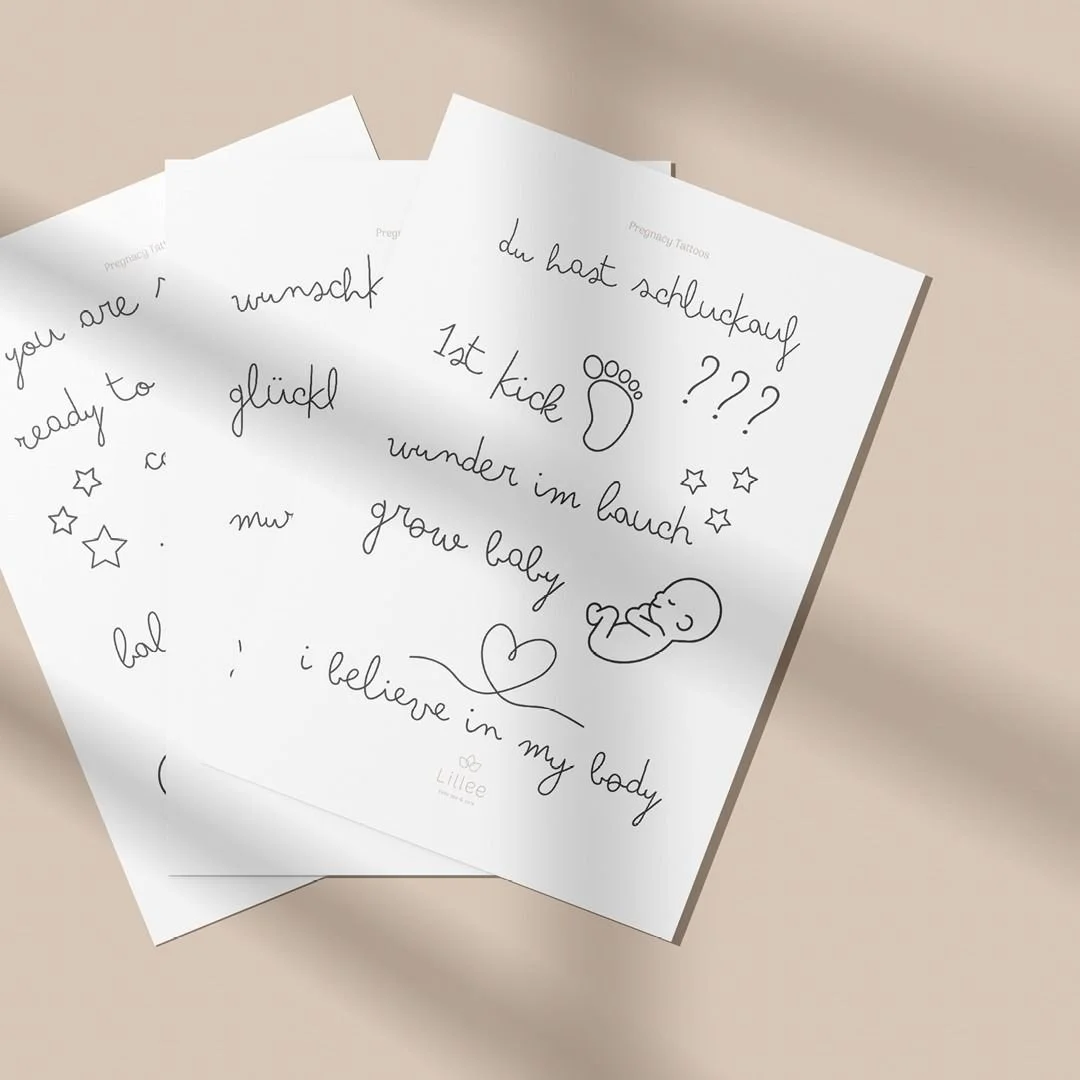 Pregnacy Tat
you are
ready to
Pregn
wunschk
glückl
Pregnacy Tattoos
du hast schluckauf
1st kick
???
wunder im bauch
grow baby
i believe in my body
Lillee